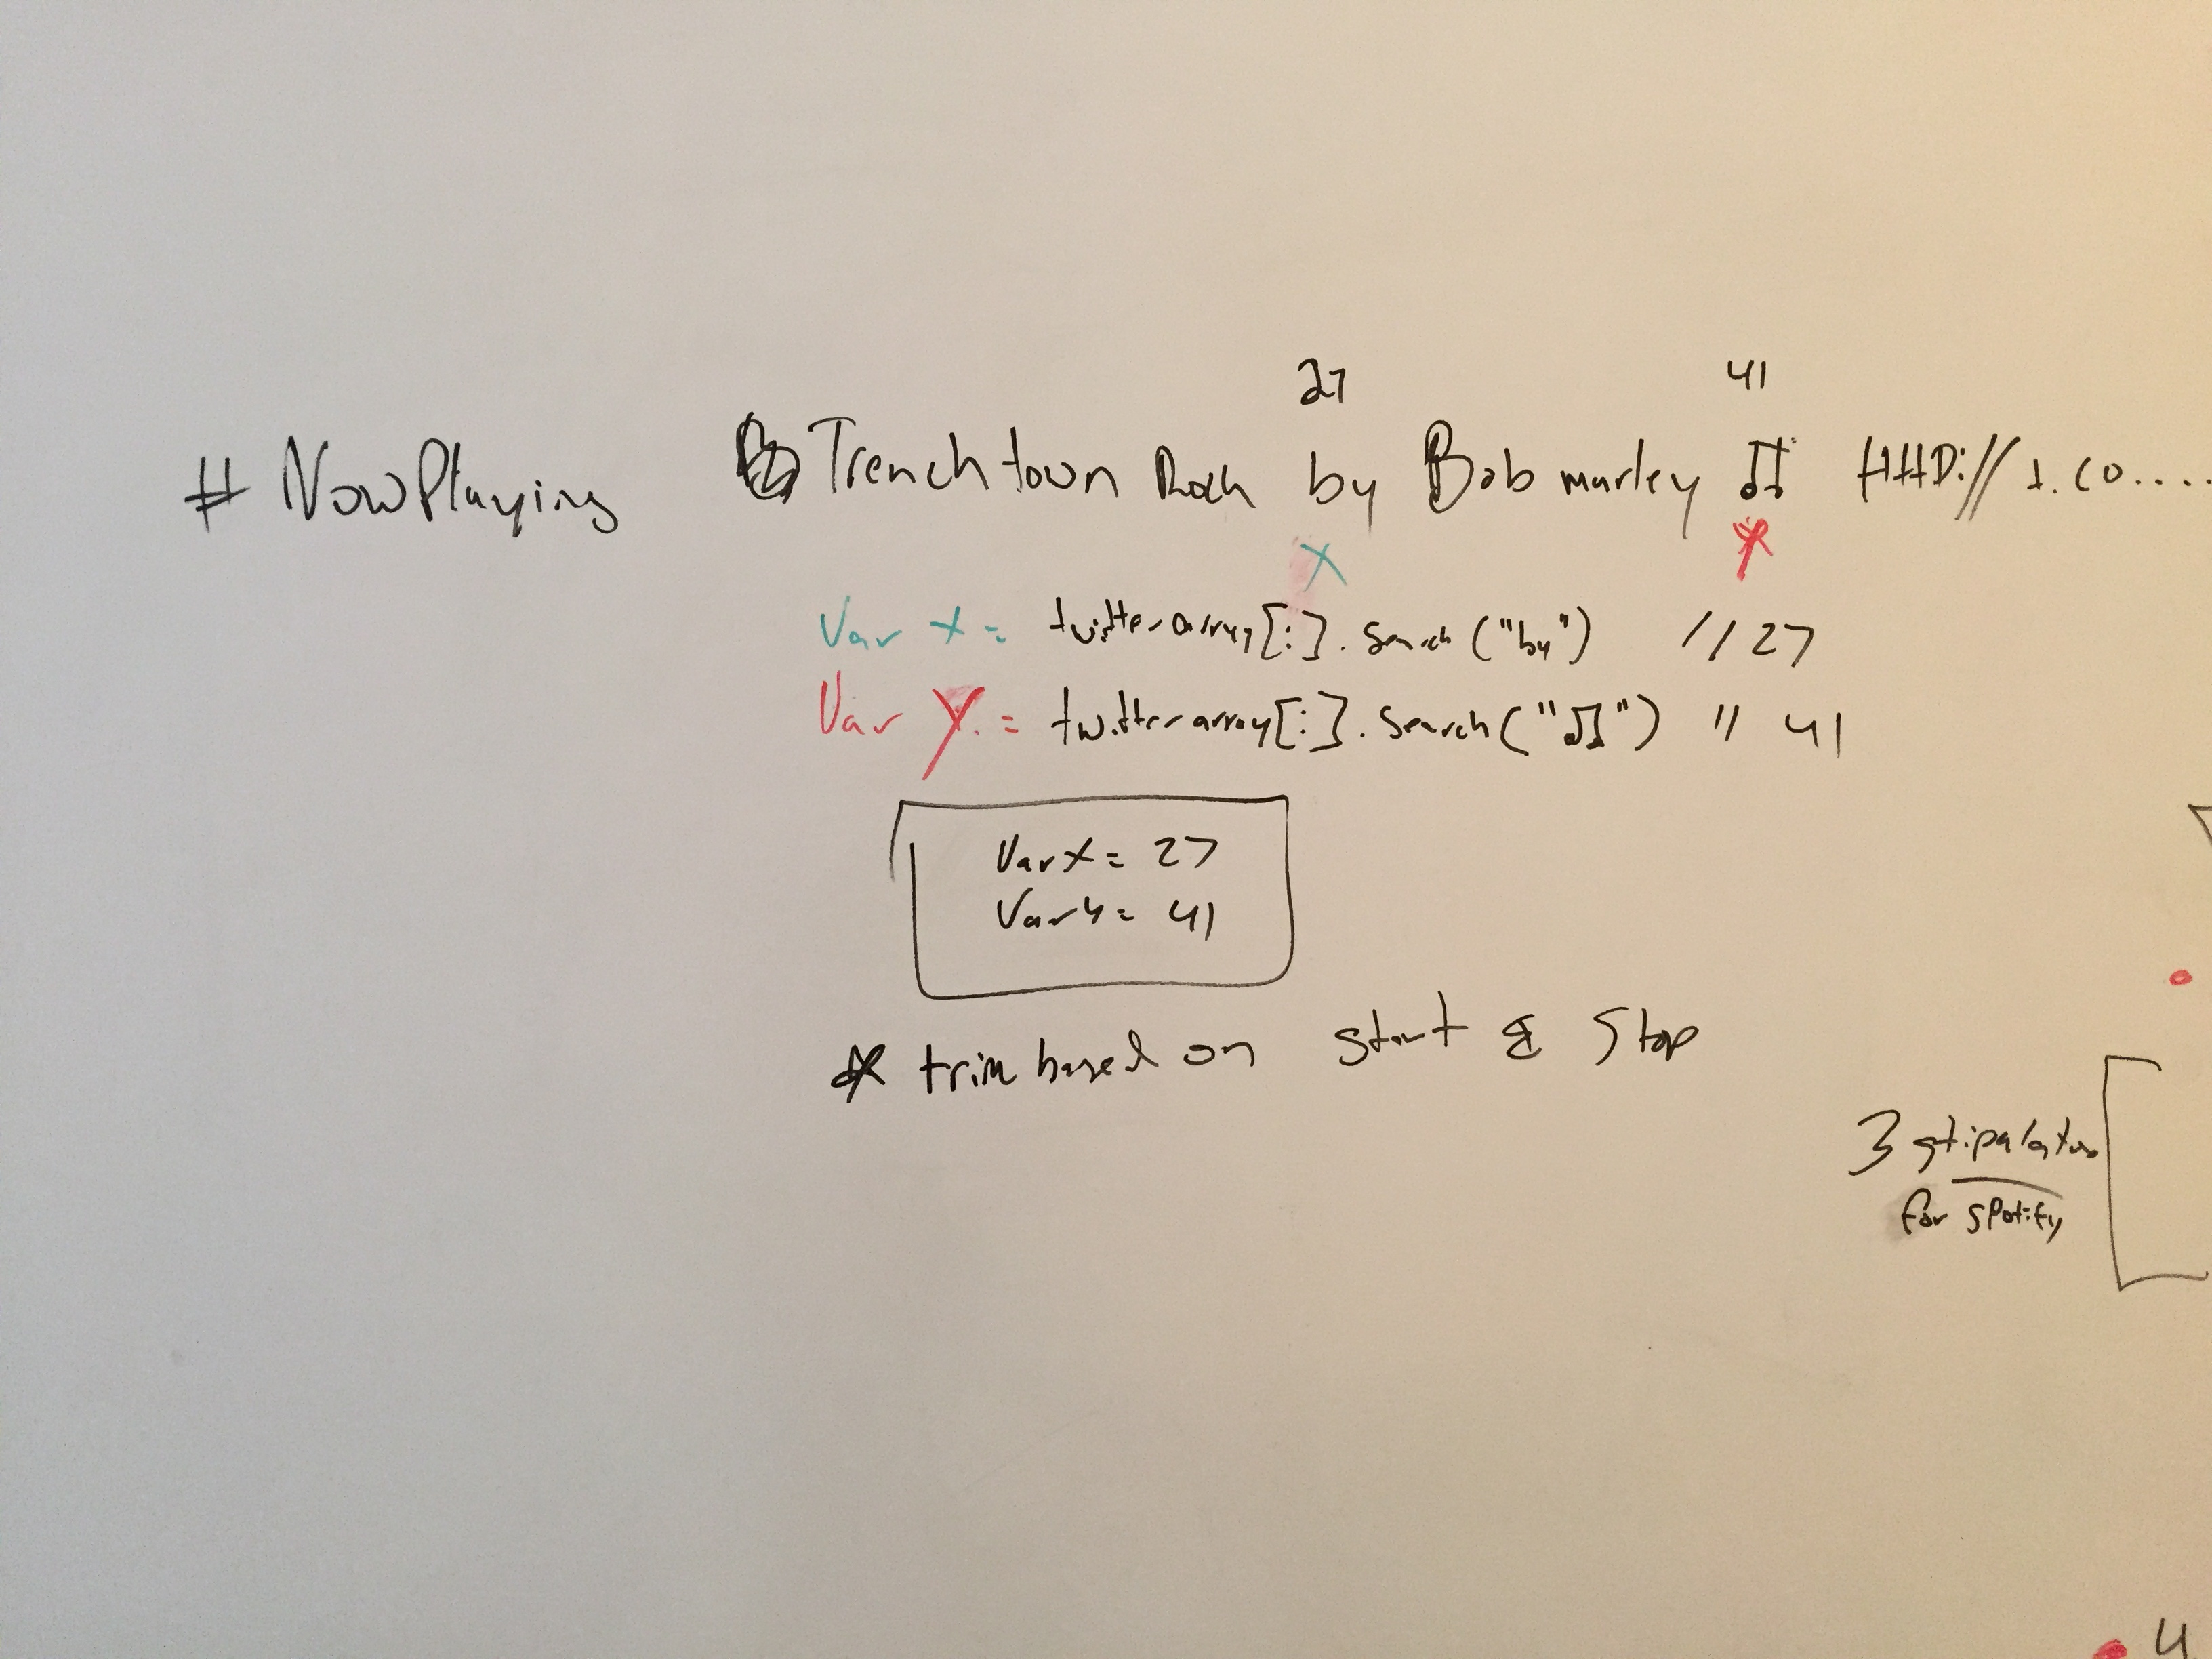 27 41
#NowPlaying Trenchtown Rock by Bob marley ♫ HttP://t.co....
X Y
Var x = twitterarray[i].search("by") //27
Var y = twitterarray[i].search("♫") // 41
Var x = 27
Var y = 41
* trim based on start & Stop
3 stipulations
for spotify
4